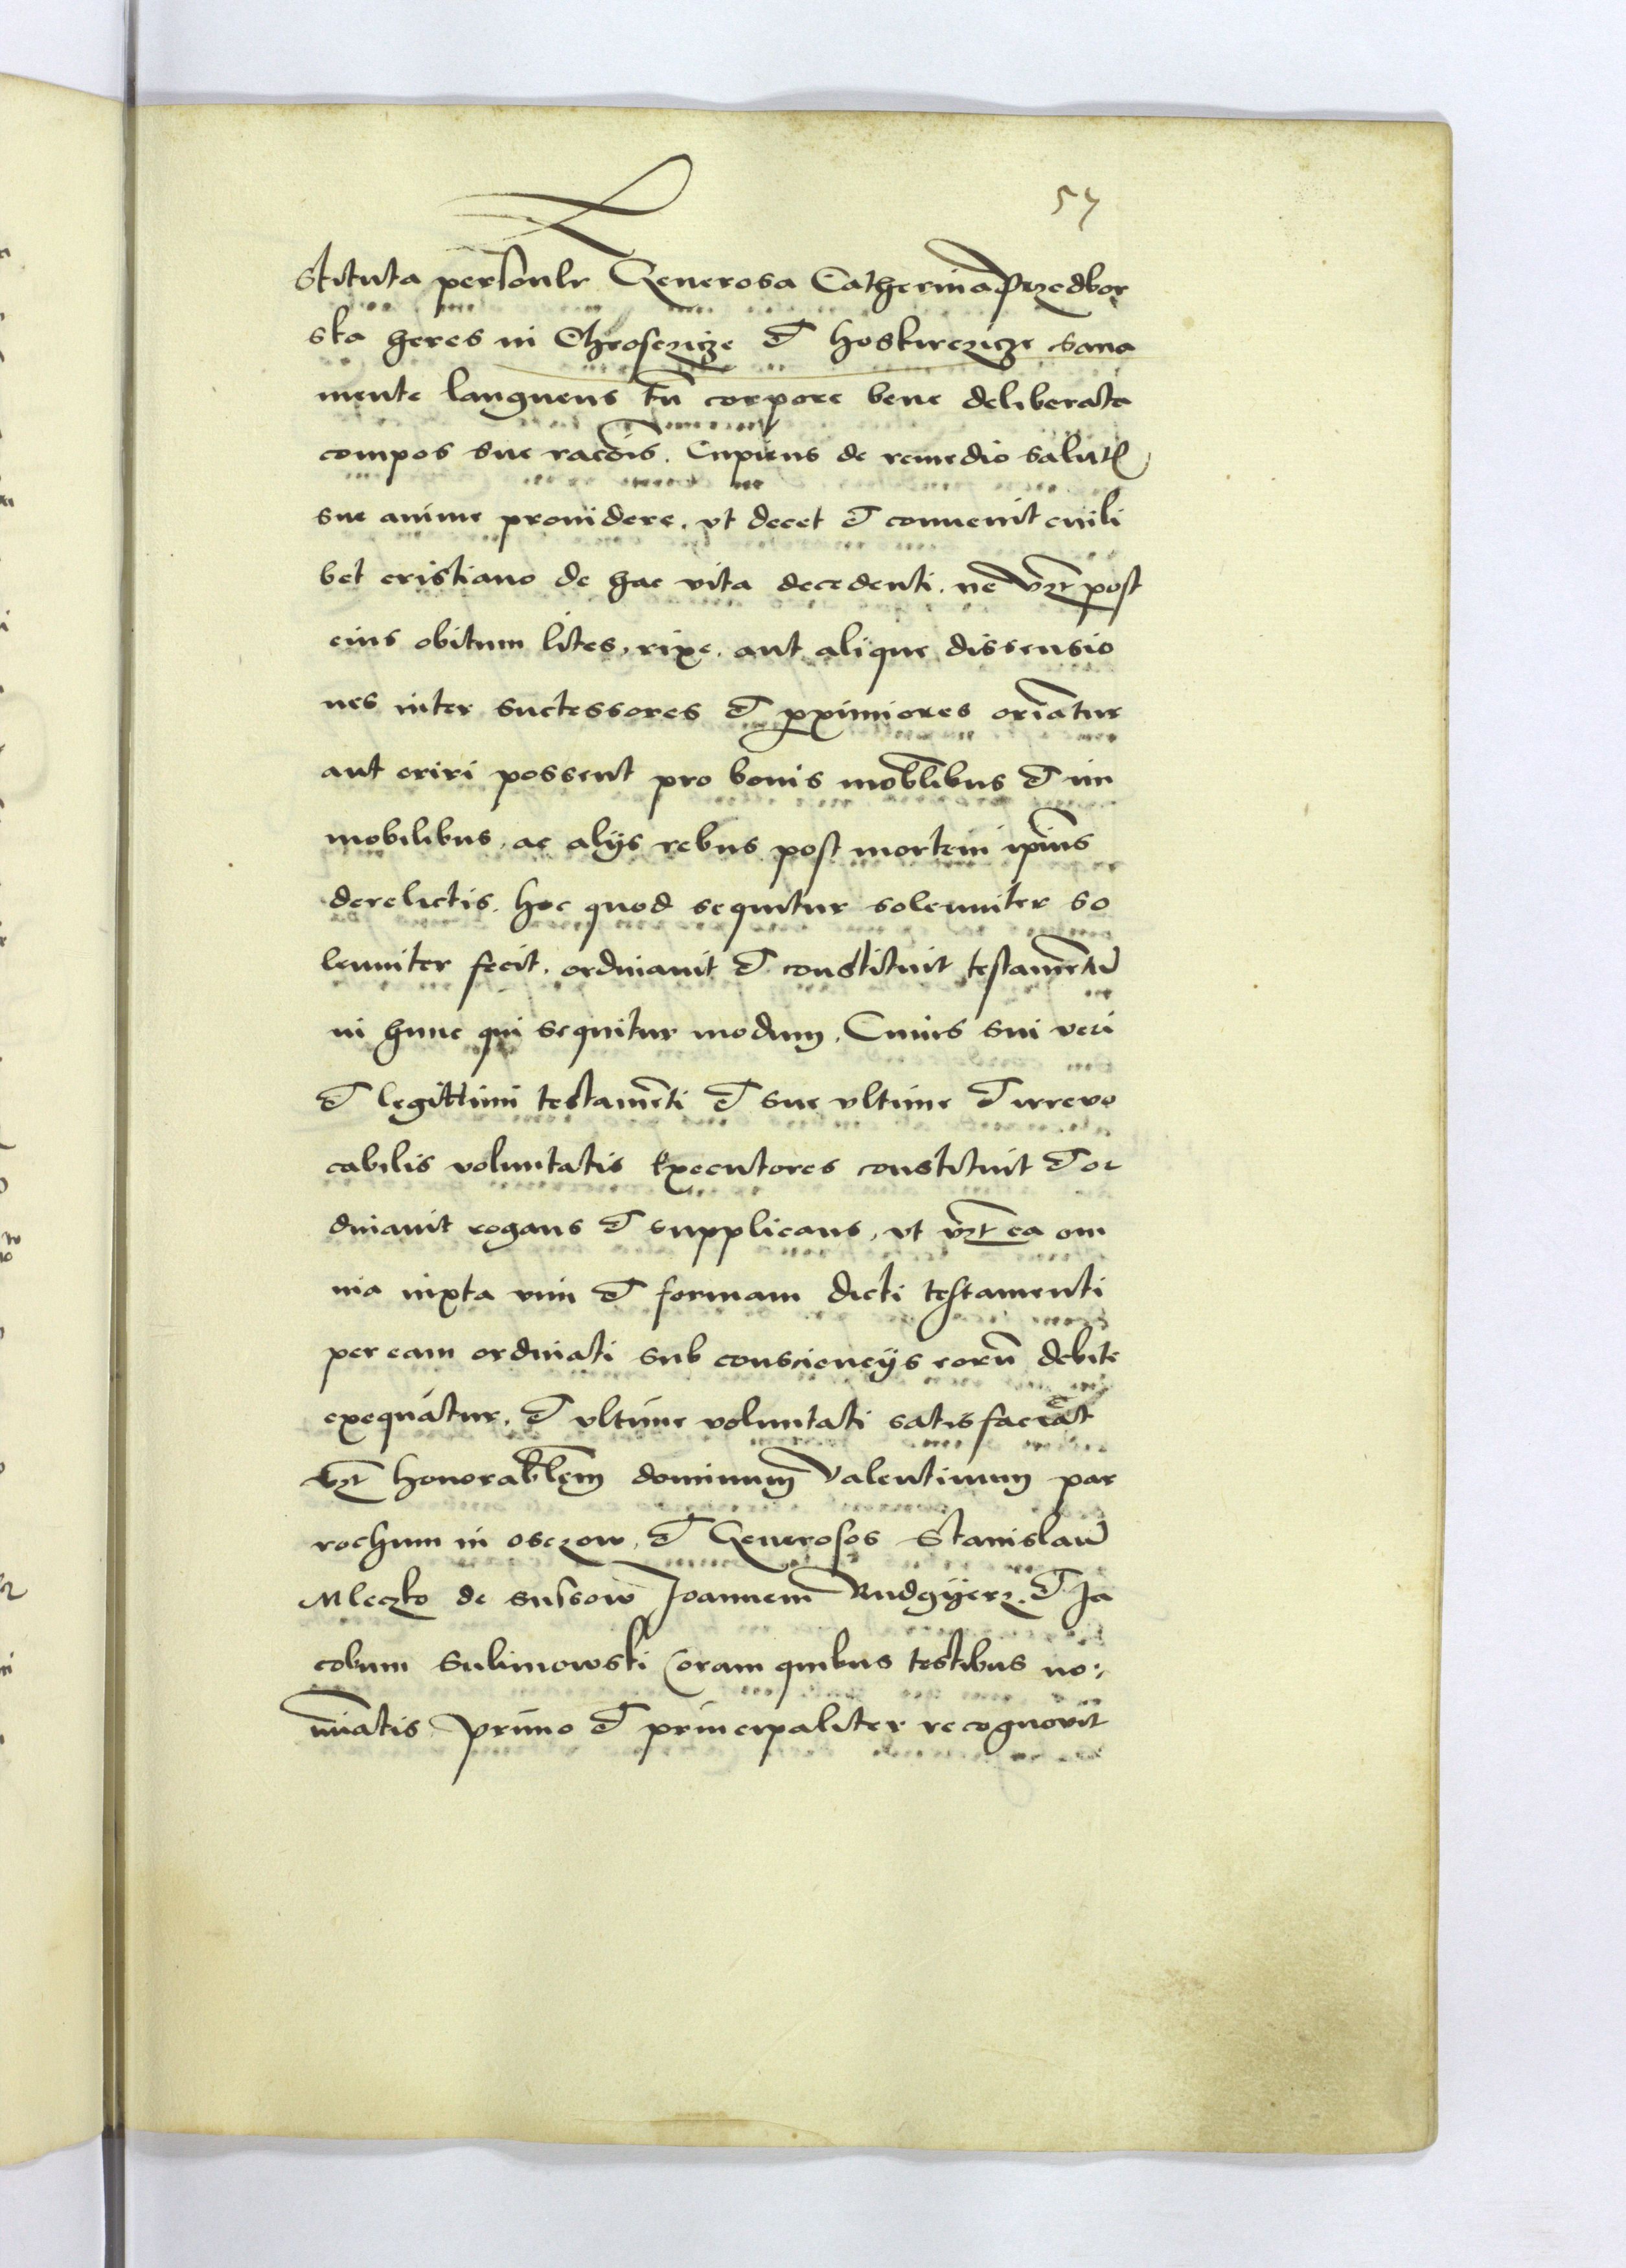 57
stituta personlr Generosa Catherina Przedbor
ska heres in Chrosczicze et hoskirczicze sana
mente languens tn̄ corpore bene deliberata
compos sue racōis. Cupiens de remedio salutis
sue anime providere, vt decet et conuenit cuili
bet cristiano de hac vita decedenti, ne vzt post
eius obitum lites, rixe, aut alique dissensio
nes inter suctessores et pximiores oriātur
aut oriri possent pro bonis mobl̄ibus et im
mobilibus, ac alÿs rebus post mortem ipius
derelictis, hoc quod sequitur solenniter so
lenniter fecit, ordinauit et constituit testamētū
in hunc qui sequitur modum, Cuius sui veri
et legittimi testamēti et sue vltime et irreuo
cabilis voluntatis Executores constituit et or
dinauit rogans et supplicans, vt vzt ea om
nia iuxta vim et formam dicti testamenti
per eam ordinati sub conscienciÿs eorū debite
exequātur, et vltime voluntati satisfaciāt
vzt honorabl̄em dominum Valentinum par
rochum in osczow, et Generosos Stanislaū
Mleczko de sulsow Joannem Rudgÿerz, et Ja
cobum Sulimowski Coram quibus testibus no:
mīatis Primo et principaliter recognovit